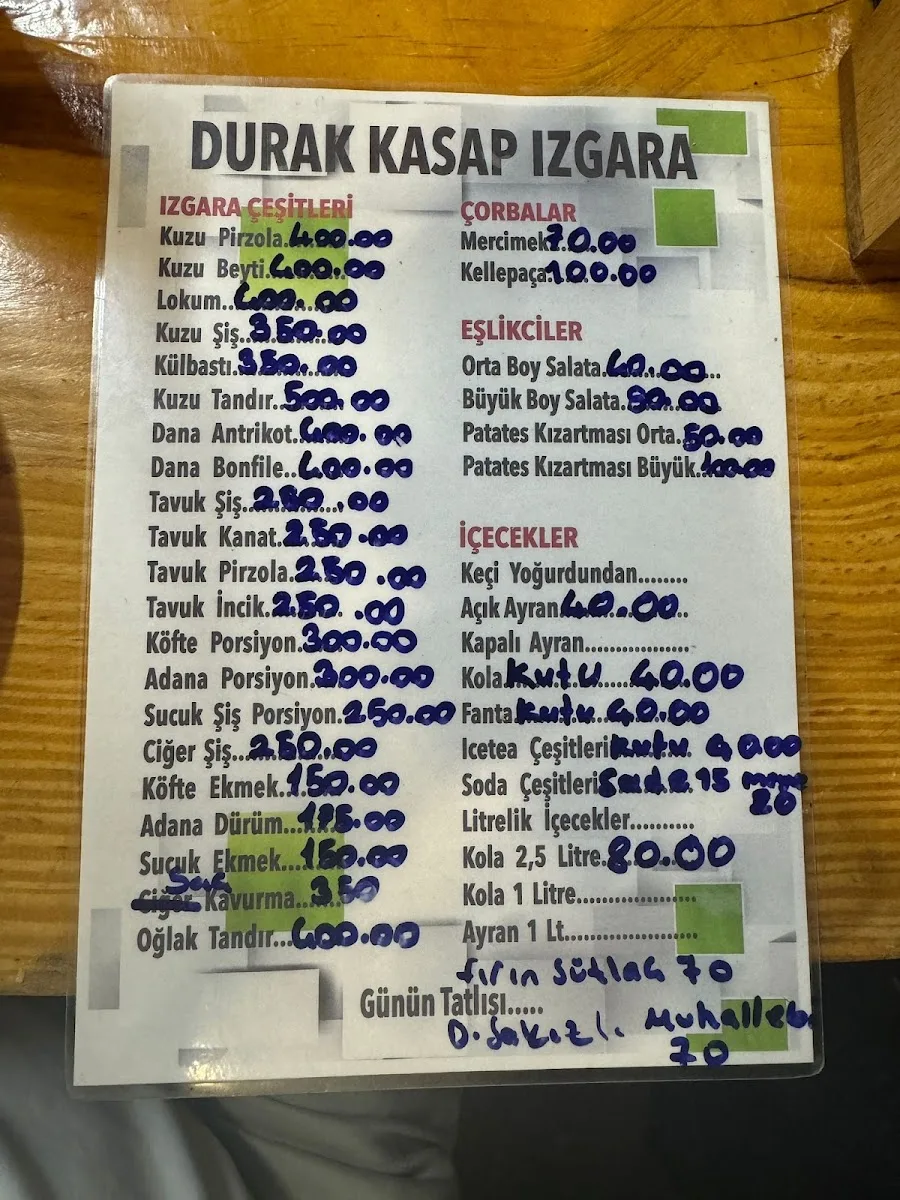 DURAK KASAP IZGARA
IZGARA ÇEŞİTLERİ
Kuzu Pirzola..400.00
Kuzu Beyti.400.00
Lokum..400.00
Kuzu Şiş..350.00
Külbastı.350.00
Kuzu Tandır..500.00
Dana Antrikot.400.00
Dana Bonfile..400.00
Tavuk Şiş..250.00
Tavuk Kanat.250.00
Tavuk Pirzola.250.00
Tavuk İncik.250.00
Köfte Porsiyon.300.00
Adana Porsiyon.300.00
Sucuk Şiş Porsiyon.250.00
Ciğer Şiş..250.00
Köfte Ekmek.150.00
Adana Dürüm...175.00
Sucuk Ekmek..150.00
Saç
Ciğer Kavurma..350
Oğlak Tandır...400.00
ÇORBALAR
Mercimek.70.00
Kellepaça.100.00
EŞLİKCİLER
Orta Boy Salata.40.00
Büyük Boy Salata.80.00
Patates Kızartması Orta..50.00
Patates Kızartması Büyük..100.00
İÇECEKLER
Keçi Yoğurdundan........
Açık Ayran.40.00..
Kapalı Ayran.................
Kola.Kutu....40.00
Fanta.Kutu 40.00
Icetea Çeşitleri Kutu 40.00
Soda Çeşitleri Sade 15 meyve
20
Litrelik İçecekler..........
Kola 2,5 Litre.80.00
Kola 1 Litre...................
Ayran 1 Lt.....................
fırın sütlaç 70
Günün Tatlısı.....
D. Sakızlı Muhalleb
70